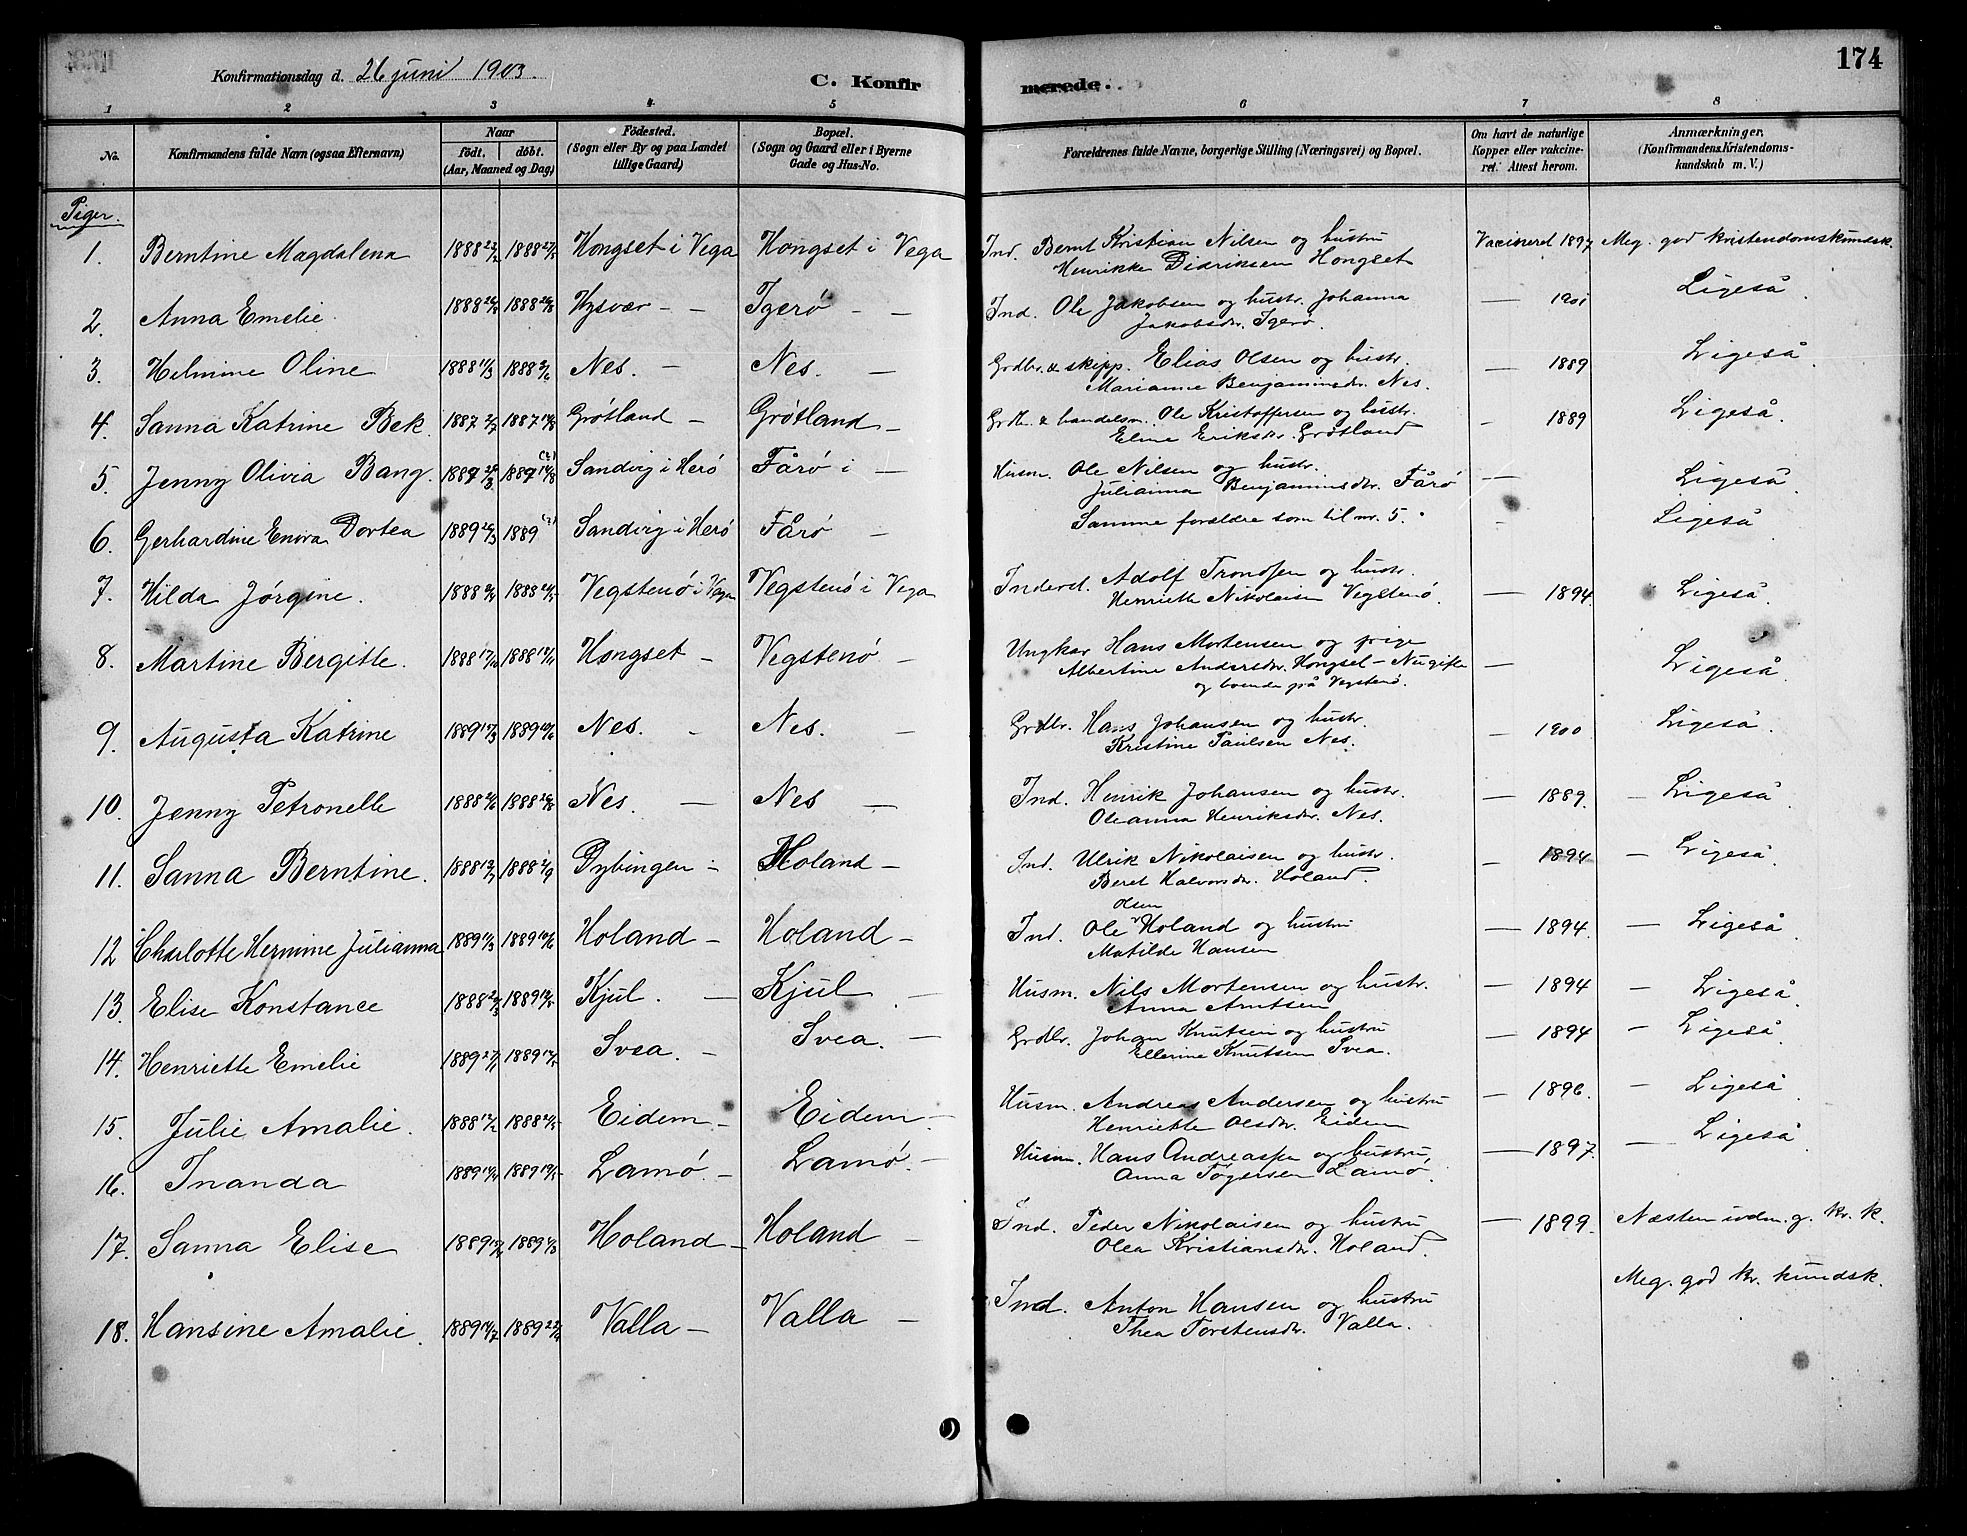 174
Konfirmationsdag d. 26 juni 1903.
C. Konfirmerede.
1 2 3 4 5 6 7 8
No. Konfirmandens fulde Navn (ogsaa Efternavn) Naar født, døbt. (Aar, Maaned og Dag) Födested. (Sogn eller By og paa Landet tillige Gaard) Bopæl. (Sogn og Gaard eller i Byerne Gade og Hus-No. Forældrenes fulde Navne, borgerlige Stilling (Næringsvei) og Bopæl. Om havt de naturlige Kopper eller vakcineret. Attest herom. Anmærkninger. (Konfirmandens Kristendomskundskab m. V.)
Piger.
1. Berntine Magdalena 1888 1888 Hongset i Vega Hongset i Vega Ind. Bernt Kristian Nilsen og hustru Vaccineret 1897 Meg. god kristendomskundsk.
Henrikke Didriksen Hongset
2. Anna Emelie 1888 1888 Hysvær - - Igerø - - Ind. Ole Jakobsen og hustr. Johanna — 1901 Ligeså.
Jakobsdr. Igerø.
3. Helmine Oline 1888 11/3 1888 Nes. — Nes. — Grdbr. & skipp. Elias Olsen og hustr. — 1889 Ligeså
Marianne Benjaminsdr. Nes.
4. Sanna Katrine Bek. 1887 1887 Grøtland — Grøtland — Grdb. & handelsm. Ole Kristoffersen og hustr. - 1889 Ligeså.
Eline Eriksdr. Grøtland
5. Jenny Olivia Bang. 1887 1887 Sandvig i Herø Fårø i — Husm. Ole Nilsen og hustr. — Ligeså
Julianna Benjaminsdr. Fårø
6. Gerhardine Enora Dortea 1889 1889 Sandvig i Herø Fårø — Samme forældre som til nr. 5. - Ligeså
7. Hilda Jørgine. 1888 1888 Vegstenø i Vega Vegstenø i Vega Inderst. Adolf Trondsen og hustr. — 1894. Ligeså
Henriette Nikolaisen Vegstenø.
8. Martine Bergitte. 1888 1888 Hongset — Vegstenø — Ungkar Hans Mortensen og pige — Ligeså
Albertine Andersdr. Hongset - Nu gifte
og boende på Vegstenø.
9. Augusta Katrine 1889 1889 Nes. - Nes. — Grdbr. Hans Johansen og hustr. - 1900 Ligeså
Kristine Paulsen Nes.
10. Jenny Petronelle 1888 1888 Nes. — Nes — Ind. Henrik Johansen og hustr. — 1889. — Ligeså
Oleanna Henriksdr. Nes.
11. Sanna Berntine. 1888 1888 Dybingen - Holand — Ind. Ulrik Nikolaisen og hustr. — 1894 — Ligeså
Beret Halvorsdr. Holand.
12 Charlotte Hermine Julianna 1889 11/3 1889 Holand — Holand — Ind. Ole Olsen Holand og hustru — 1894. — Ligeså
Matilde Hansen
13. Elise Konstance 1888 1889 Kjul. — Kjul — Husm. Nils Mortensen og hustr. — 1894 — Ligeså
Anna Arntsen
14. Henriette Emelie 1889 1889 Svea. — Svea. — Grdbr. Johan Knutsen og hustru — 1894 — Ligeså.
Ellerine Knutsen Svea.
15. Julie Amalie. 1888 1888 Eidem — Eidem — Husm. Andreas Andersen og hustru — 1896. — Ligeså
Henriette Olsdr. Eidem
16. Inanda 1889 1889 Lamø. — Lamø. — Husm. Hans Andreassen og hustru, — 1897. — Ligeså
Anna Togersen Lamø.
17. Sanna Elise 1889 1889 Holand — Holand — Ind. Peder Nikolaisen og hustru — 1899. Næsten udm. g. kr. k.
Olea Kristiansdr. Holand.
18. Hansine Amalie. 1889 1889 Valla — Valla — Ind. Anton Hansen og hustru Meg. god kr. kundsk.
Thea Torstensdr. Valla.